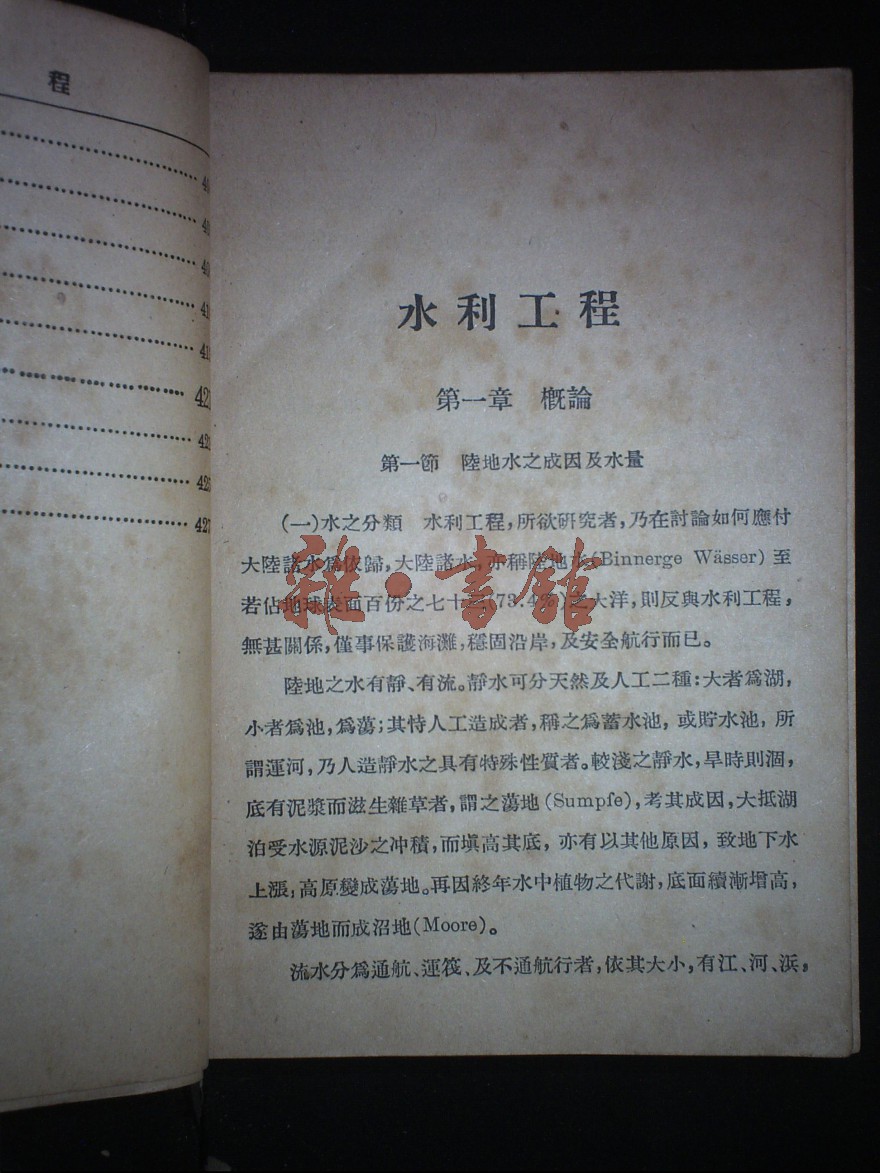 程
421
427
水利工程
第一章 概論
第一節 陸地水之成因及水量
(一)水之分類 水利工程,所欲硏究者,乃在討論如何應付
大陸諸水爲依歸,大陸諸水,亦稱陸地水(Binnerge Wässer)至
若佔地球表面百份之七十三(73.4%)之大洋,則反與水利工程,
無甚關係,僅事保護海灘,穩固沿岸,及安全航行而已。
陸地之水有靜、有流。靜水可分天然及人工二種:大者爲湖,
小者爲池,爲蕩;其恃人工造成者,稱之爲蓄水池,或貯水池,所
謂運河,乃人造靜水之具有特殊性質者。較淺之靜水,旱時則涸,
底有泥漿而滋生雜草者,謂之蕩地(Sumpfe),考其成因,大抵湖
泊受水源泥沙之冲積,而塡高其底,亦有以其他原因,致地下水
上漲,高原變成蕩地。再因終年水中植物之代謝,底面續漸增高,
遂由蕩地而成沼地(Moore)。
流水分爲通航、運筏、及不通航行者,依其大小,有江、河、浜,
雜·書館